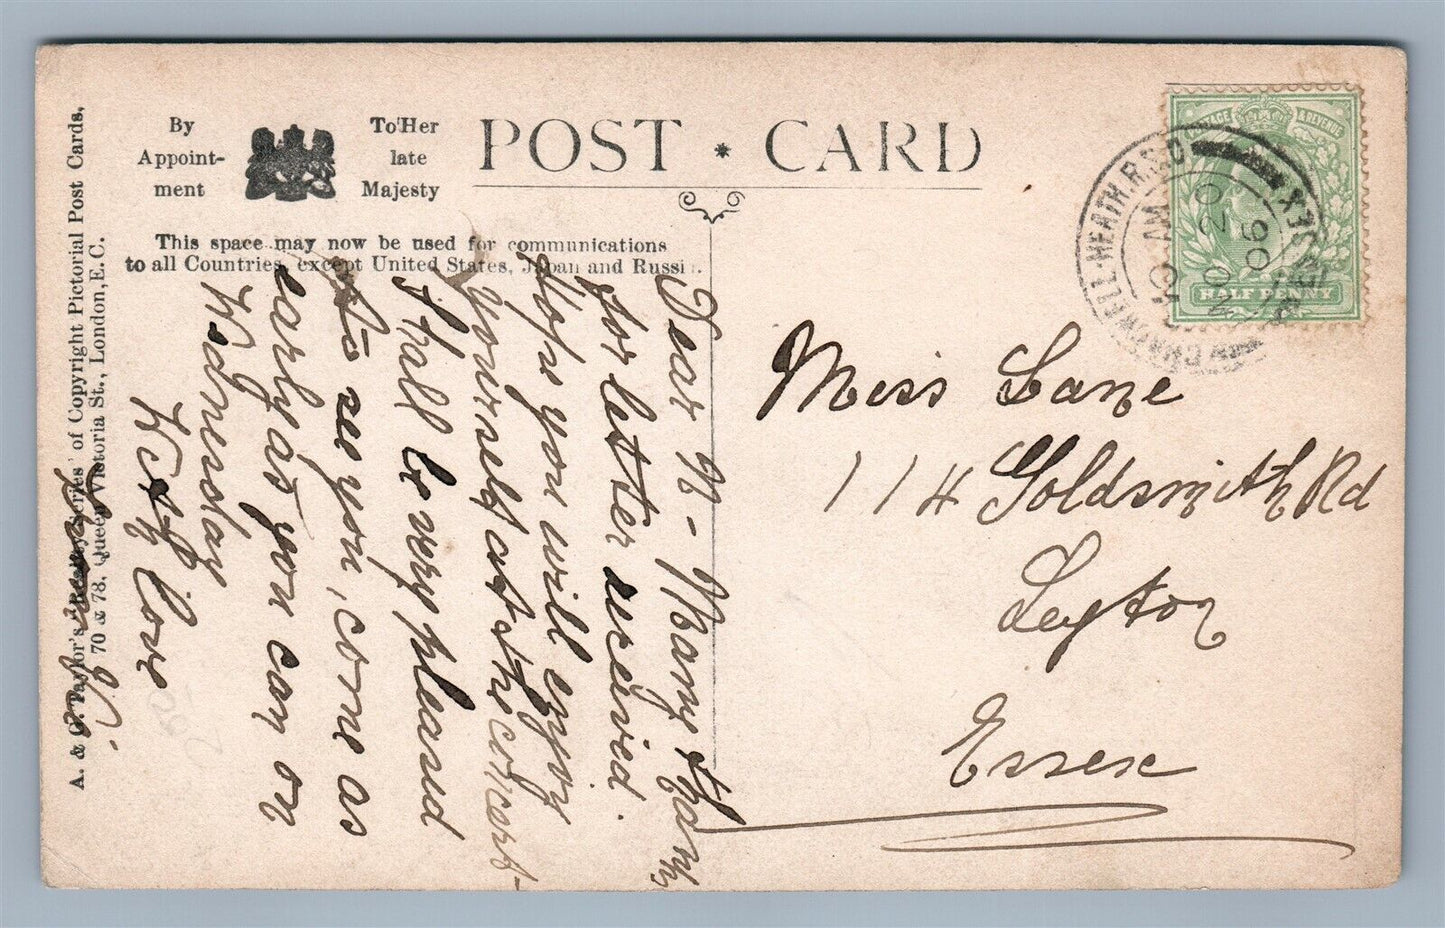 By
Appoint-
ment
To Her
late
Majesty
POST * CARD
This space may now be used for communications
to all Countries, except United States, Japan and Russia.
A. & G. Taylor's 'Reality Series' of Copyright Pictorial Post Cards,
70 & 78, Queen Victoria St., London, E.C.
POSTAGE & REVENUE
HALF PENNY
CHADWELL-HEATH. R.S.O
ESSEX
10 AM
NO 20
06
Miss Lane
114 Goldsmith Rd
Leyton
Essex
Dear N- Many thanks
for letter received.
Hope you will enjoy
yourself at the concert-
I shall be very pleased
to see you, come as
early as you can on
Wednesday
With love